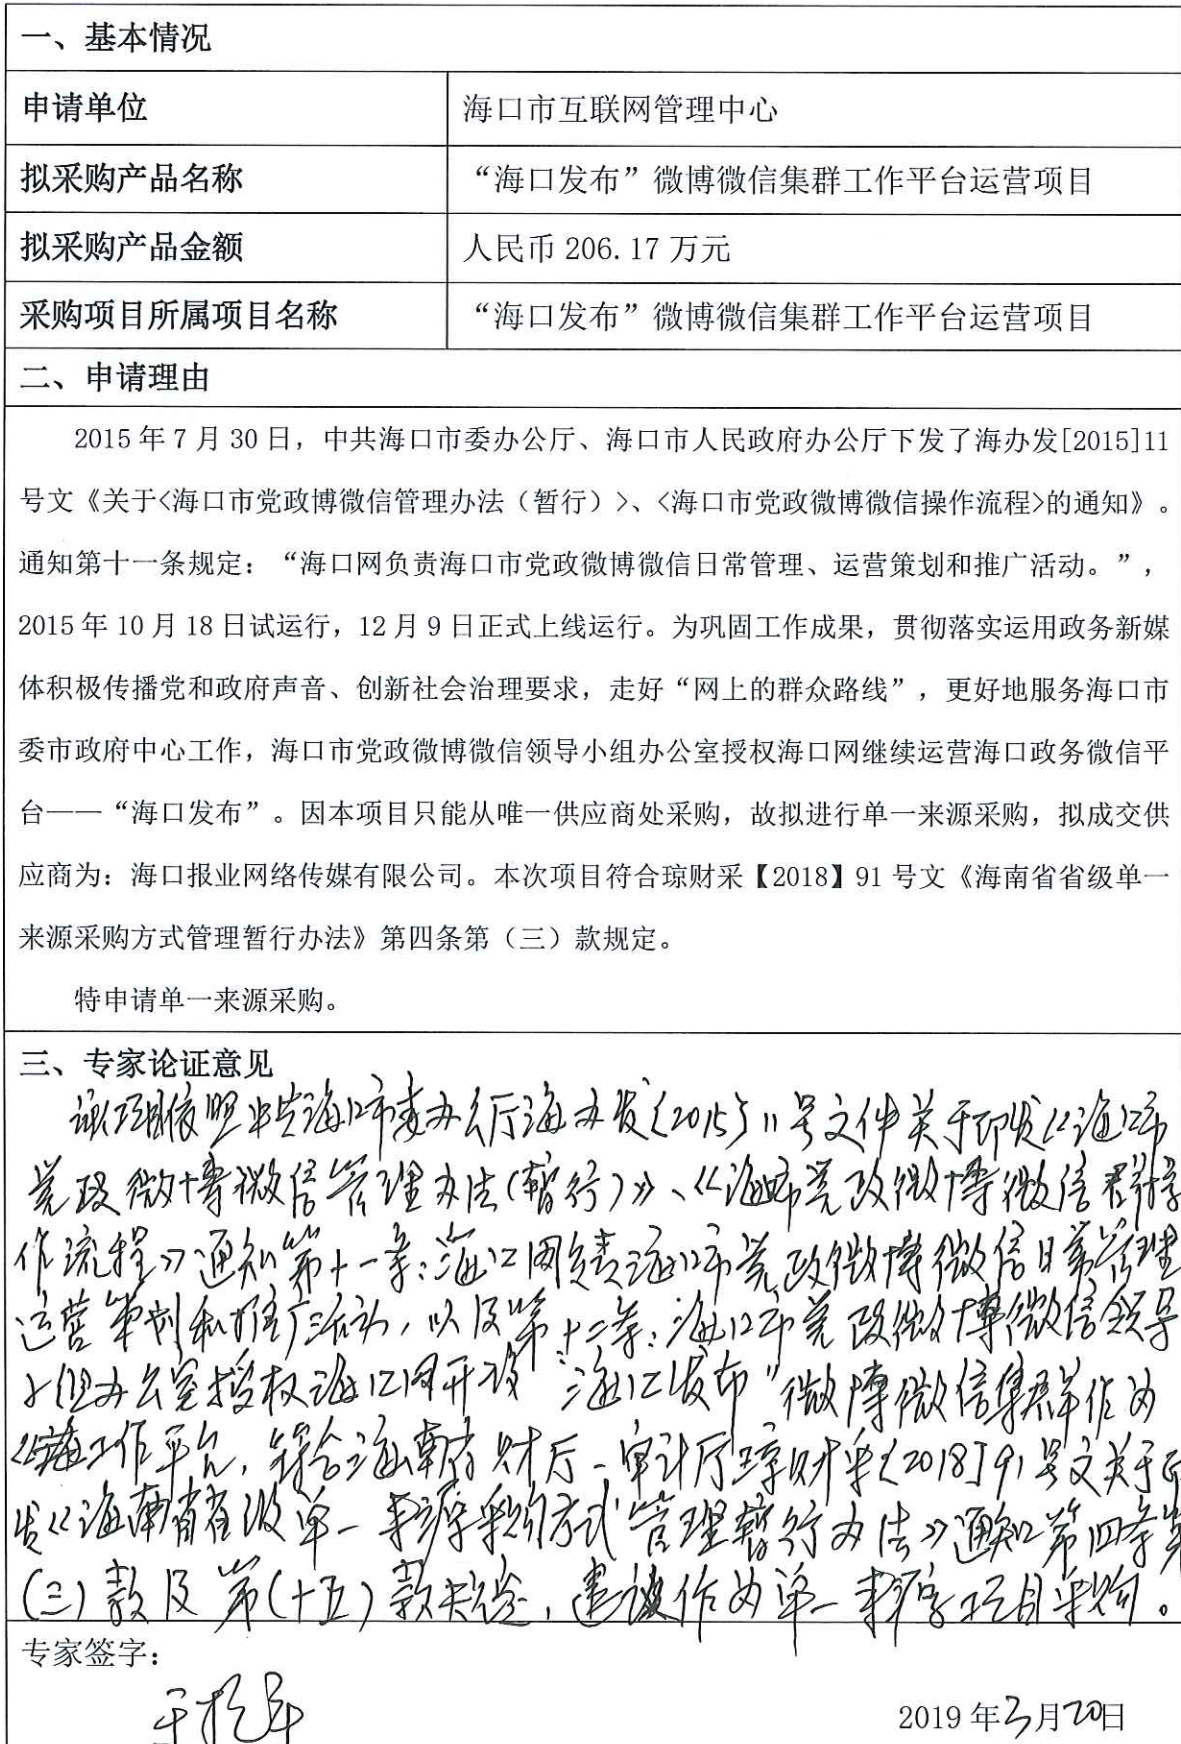 一、基本情况
申请单位 海口市互联网管理中心
拟采购产品名称 “海口发布”微博微信集群工作平台运营项目
拟采购产品金额 人民币 206.17 万元
采购项目所属项目名称 “海口发布”微博微信集群工作平台运营项目
二、申请理由
2015 年 7 月 30 日，中共海口市委办公厅、海口市人民政府办公厅下发了海办发[2015]11
号文《关于<海口市党政博微信管理办法（暂行）>、<海口市党政微博微信操作流程>的通知》。
通知第十一条规定：“海口网负责海口市党政微博微信日常管理、运营策划和推广活动。”，
2015 年 10 月 18 日试运行，12 月 9 日正式上线运行。为巩固工作成果，贯彻落实运用政务新媒
体积极传播党和政府声音、创新社会治理要求，走好“网上的群众路线”，更好地服务海口市
委市政府中心工作，海口市党政微博微信领导小组办公室授权海口网继续运营海口政务微信平
台——“海口发布”。因本项目只能从唯一供应商处采购，故拟进行单一来源采购，拟成交供
应商为：海口报业网络传媒有限公司。本次项目符合琼财采【2018】91 号文《海南省省级单一
来源采购方式管理暂行办法》第四条第（三）款规定。
特申请单一来源采购。
三、专家论证意见
该项目依照中共海口市委办公厅海办发〔2015〕11号文件关于印发《海口市
党政微博微信管理办法(暂行)》、《海口市党政微博微信群
作流程》通知第十一条:海口网负责海口市党政微博微信日常管理
运营策划和推广活动，以及第十二条:海口市党政微博微信领导
小组办公室授权海口网开设“海口发布”微博微信集群作为
工作平台，符合海南省财厅、审计厅琼财采〔2018〕91号文关于印
发《海南省省级单一来源采购方式管理暂行办法》通知第四条第
(三)款及第(十五)款规定，建议作为单一来源项目采购。
专家签字：
2019 年3月20日